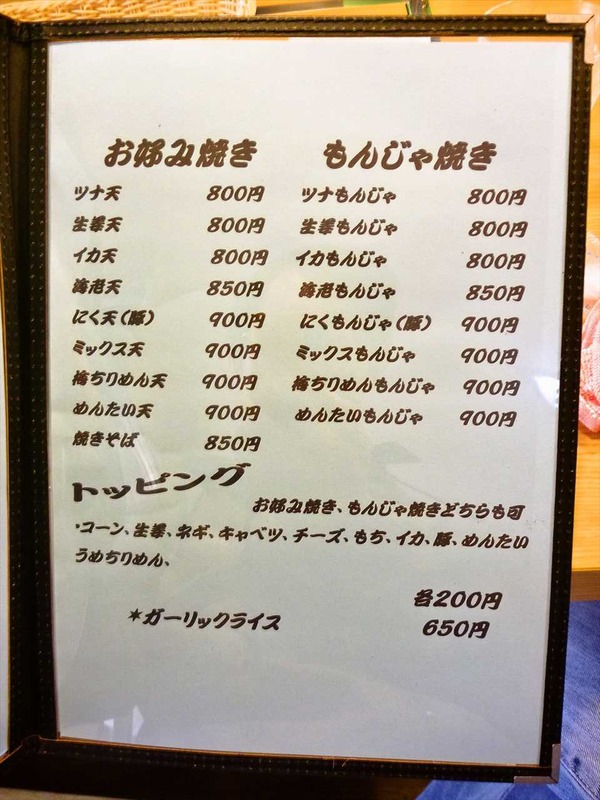 お好み焼き
ツナ天 800円
生姜天 800円
イカ天 800円
海老天 850円
にく天(豚) 900円
ミックス天 900円
梅ちりめん天 900円
めんたい天 900円
焼きそば 850円
もんじゃ焼き
ツナもんじゃ 800円
生姜もんじゃ 800円
イカもんじゃ 800円
海老もんじゃ 850円
にくもんじゃ(豚) 900円
ミックスもんじゃ 900円
梅ちりめんもんじゃ 900円
めんたいもんじゃ 900円
トッピング
お好み焼き、もんじゃ焼きどちらも可
・コーン、生姜、ネギ、キャベツ、チーズ、もち、イカ、豚、めんたい
うめちりめん、
各200円
*ガーリックライス 650円